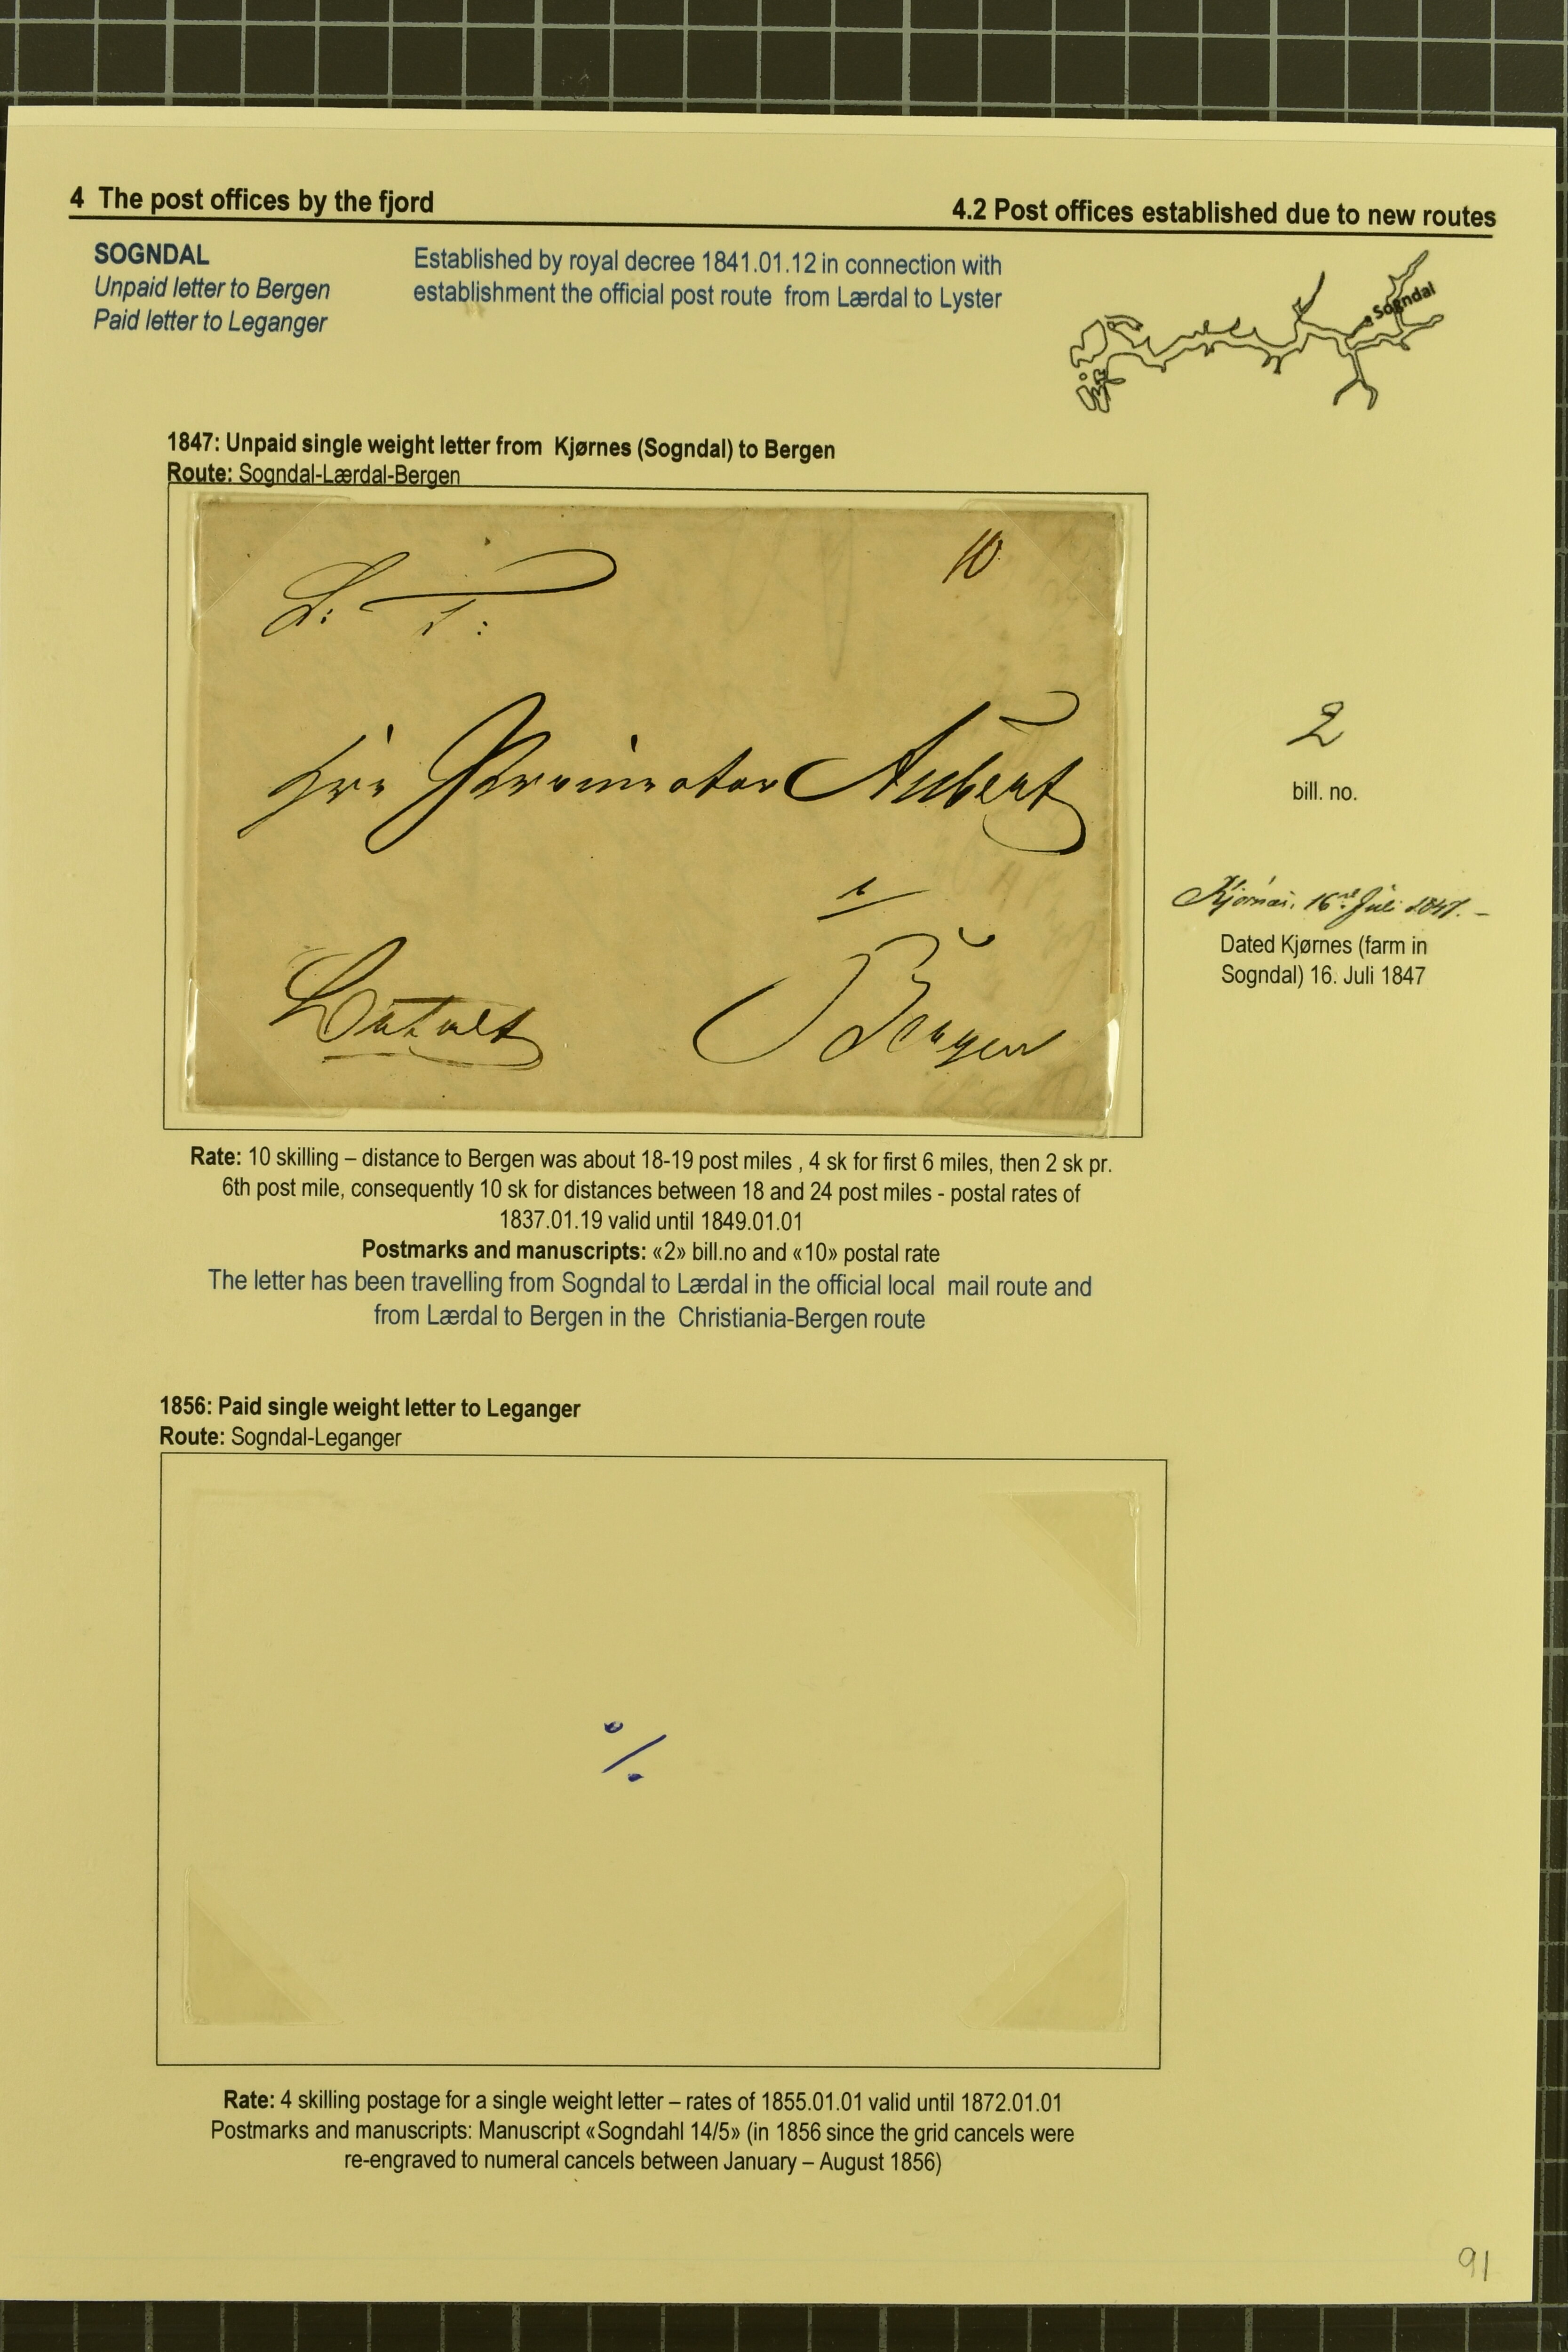 4 The post offices by the fjord
4.2 Post offices established due to new routes
SOGNDAL
Unpaid letter to Bergen
Paid letter to Leganger
Established by royal decree 1841.01.12 in connection with
establishment the official post route from Lærdal to Lyster
Sogndal
1847: Unpaid single weight letter from Kjørnes (Sogndal) to Bergen
Route: Sogndal-Lærdal-Bergen
10
S: T:
Aubert
Bergen
2
bill. no.
16 Juli 1847.
Dated Kjørnes (farm in
Sogndal) 16. Juli 1847
Rate: 10 skilling – distance to Bergen was about 18-19 post miles , 4 sk for first 6 miles, then 2 sk pr.
6th post mile, consequently 10 sk for distances between 18 and 24 post miles - postal rates of
1837.01.19 valid until 1849.01.01
Postmarks and manuscripts: «2» bill.no and «10» postal rate
The letter has been travelling from Sogndal to Lærdal in the official local mail route and
from Lærdal to Bergen in the Christiania-Bergen route
1856: Paid single weight letter to Leganger
Route: Sogndal-Leganger
%
Rate: 4 skilling postage for a single weight letter – rates of 1855.01.01 valid until 1872.01.01
Postmarks and manuscripts: Manuscript «Sogndahl 14/5» (in 1856 since the grid cancels were
re-engraved to numeral cancels between January – August 1856)
91